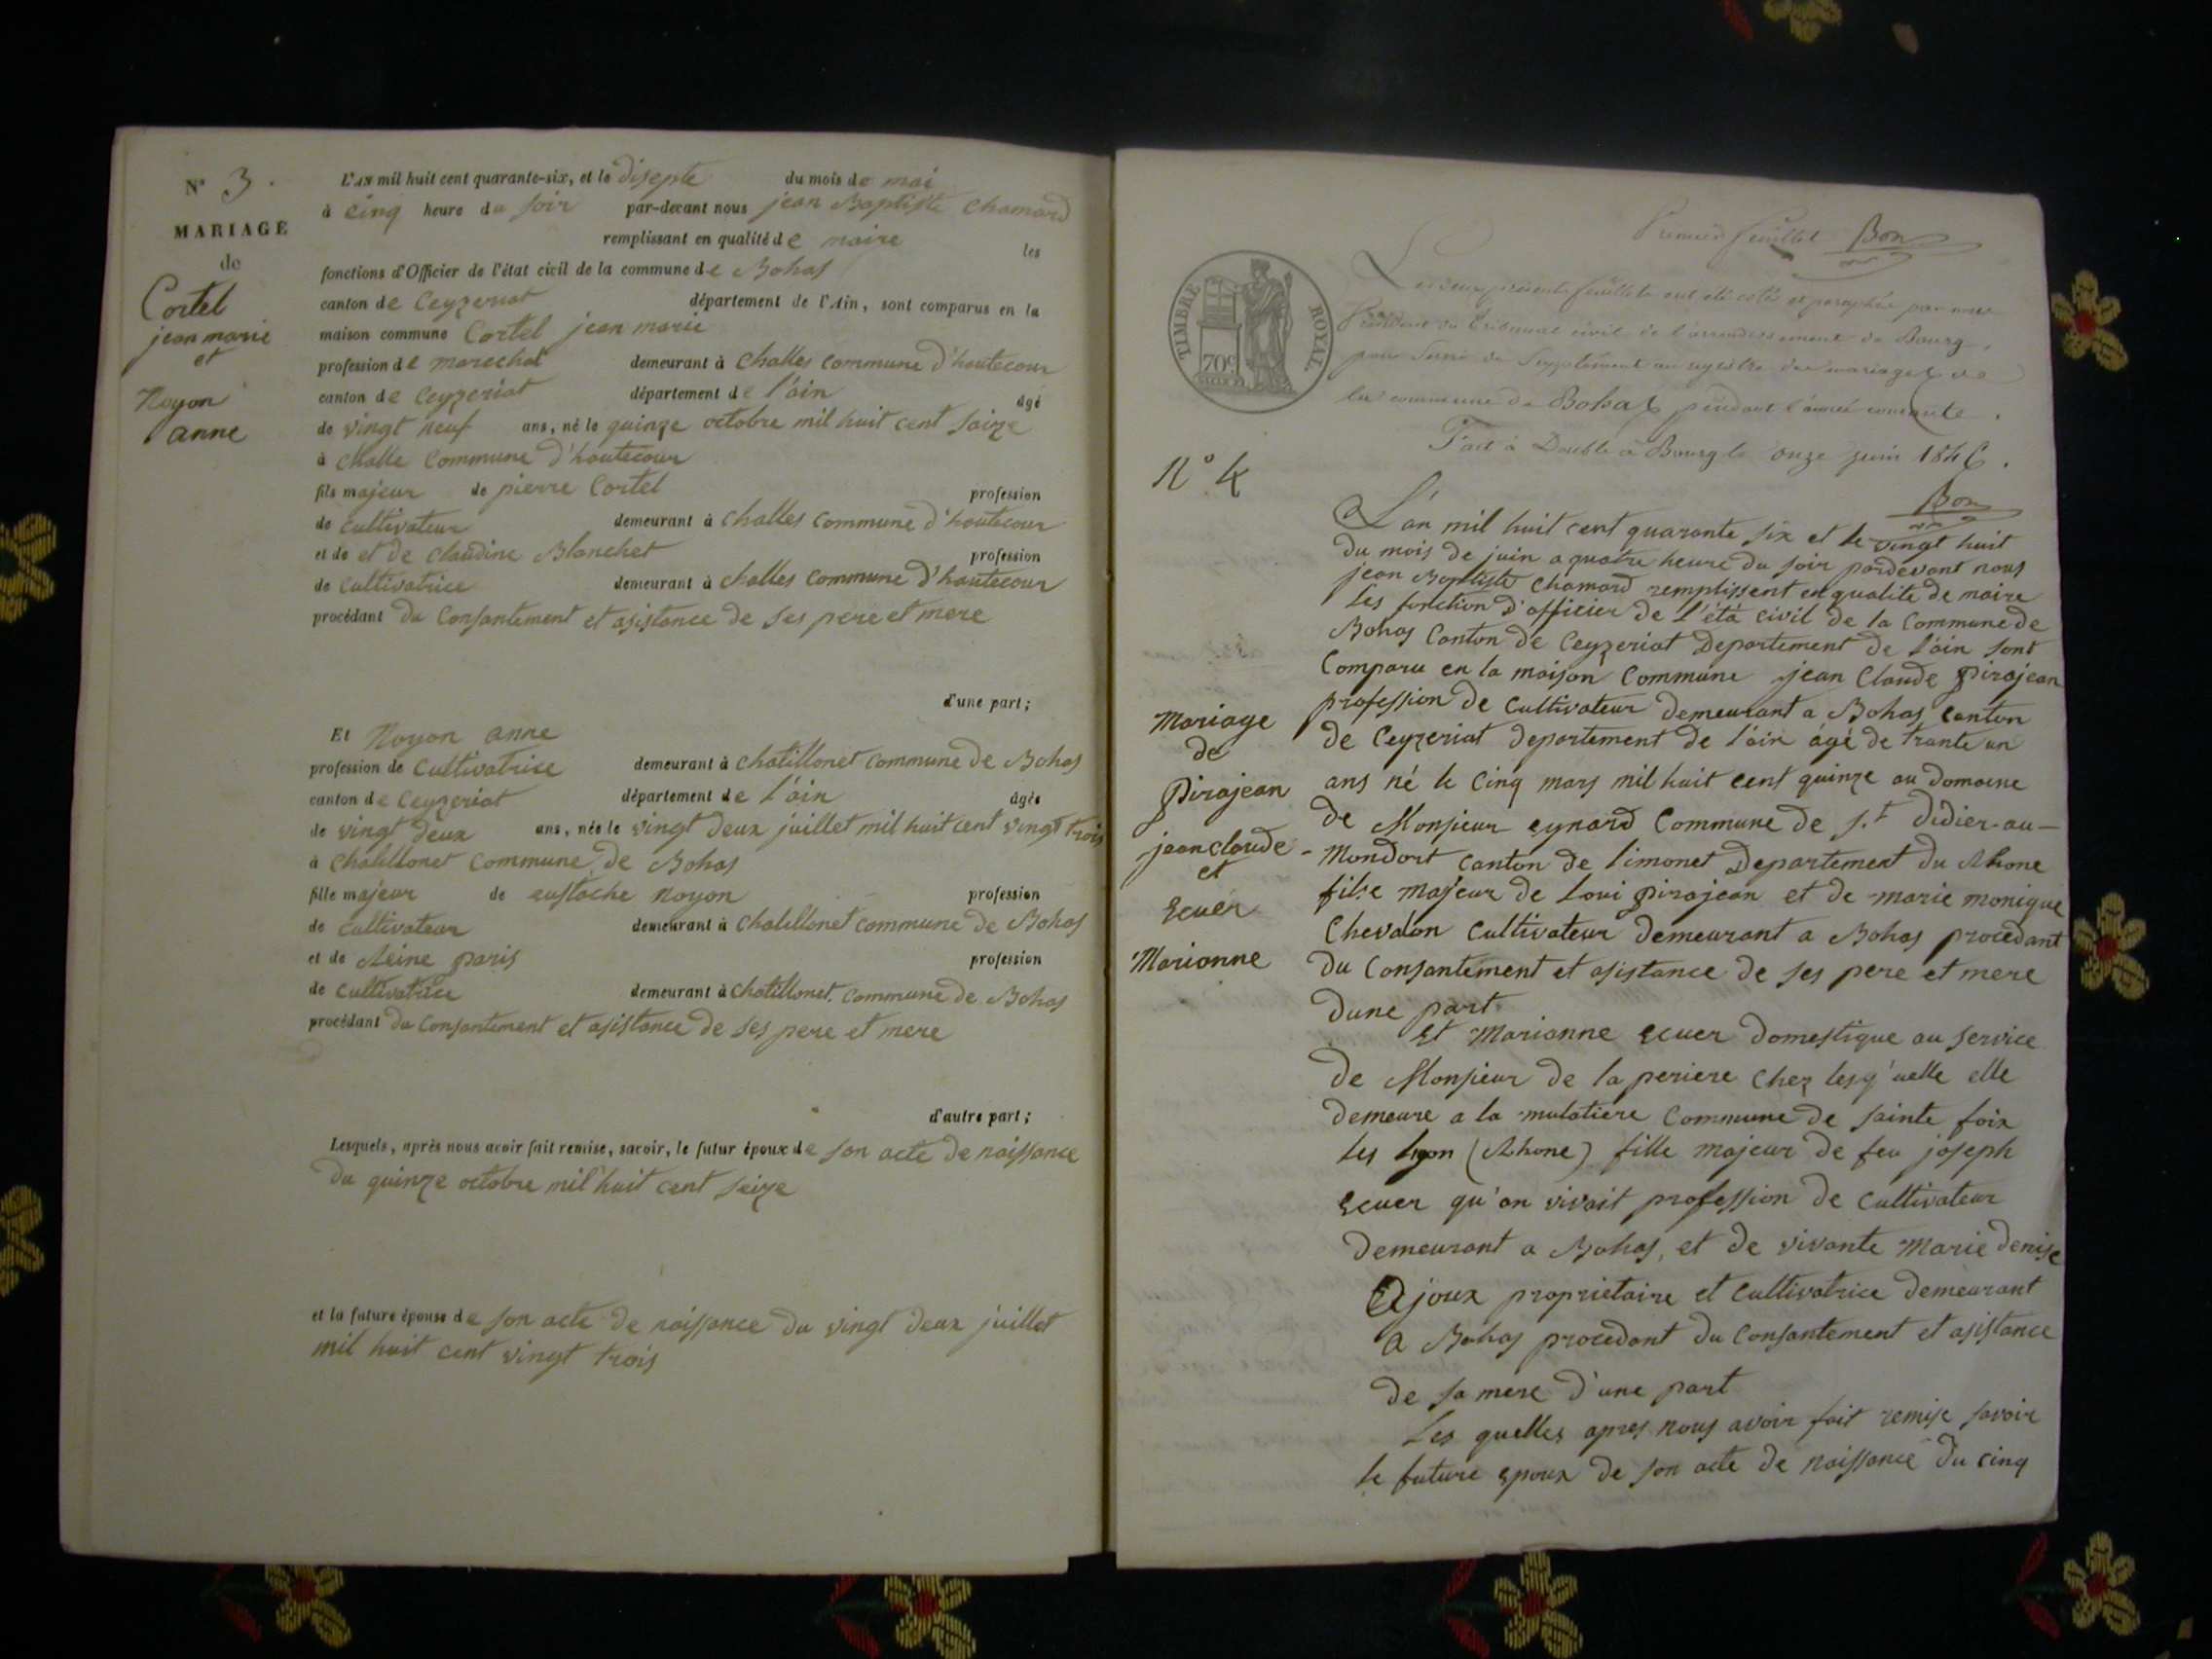 N° 3.
MARIAGE
de
Cortel
jean marie
et
Noyon
anne
L'AN mil huit cent quarante-six, et le disepte du mois de mai
à cinq heure du soir par-devant nous jean Baptiste Chamard
remplissant en qualité de maire les
fonctions d'Officier de l'état civil de la commune de Bohas
canton de Ceyzeriat département de l'Ain, sont comparus en la
maison commune Cortel jean marie
profession de marechal demeurant à Challes commune d'hautecour
canton de Ceyzeriat département de l'ain âgé
de vingt neuf ans, né le quinze octobre mil huit cent saize
à Challe Commune d'hautecour
fils majeur de pierre Cortel profession
de cultivateur demeurant à Challes commune d'hautecour
et de et de claudine Blanchet profession
de cultivatrice demeurant à challes Commune d'hautecour
procédant du Consantement et asistance de ses pere et mere
d'une part;
Et Noyon anne
profession de Cultivatrice demeurant à chatillonet commune de Bohas
canton de Ceyzeriat département de l'ain âgée
de vingt deux ans, née le vingt deux juillet mil huit cent vingt trois
à Chatillonet Commune de Bohas
fille majeur de eustache Noyon profession
de cultivateur demeurant à Chatillonet commune de Bohas
et de Reine paris profession
de cultivatrice demeurant à chatillonet commune de Bohas
procédant du Consantement et asistance de ses pere et mere
d'autre part;
Lesquels, après nous avoir fait remise, savoir, le futur époux de son acte de naissance
du quinze octobre mil huit cent seize
et la future épouse de son acte de naissance du vingt deux juillet
mil huit cent vingt trois
Premier feuillet Bon
TIMBRE ROYAL
70c
Les deux présents feuillets ont été cotés et paraphés par nous
Président du Tribunal civil de l'arrondissement de Bourg,
pour servir de Supplément au registre des mariages de
la commune de Bohas pendant l'année courante.
Fait à Double à Bourg le onze juin 1846.
Bon
N° 4
Mariage
de
Pirajean
jean claude
et
Ecuer
Marianne
L'an mil huit cent quarante six et le vingt huit
du mois de juin a quatre heure du soir pardevant nous
jean Baptiste Chamard remplissent en qualité de maire
les fonction d'officier de l'éta civil de la Commune de
Bohas Canton de Ceyzeriat Departement de l'ain sont
Comparu en la maison Commune jean Claude Pirajean
profession de Cultivateur demeurant a Bohas canton
de Ceyzeriat departement de l'ain agé de trante un
ans né le Cinq mars mil huit cent quinze au domaene
de Monsieur eynard Commune de St didier-au-
-Mondort canton de limonet Departement du Rhone
filse majeur de Loui Pirajean et de marie monique
Chevalon Cultivateur demeurant a Bohas procedant
du Consantement et asistance de ses pere et mere
dune part
Et Marianne Ecuer domestique au service
de Monsieur de la periere Chez lesq'uelle elle
demeure a la mulatiere Commune de sainte foix
les lyon (Rhone) fille majeur de feu joseph
Ecuer qu'an vivait profession de Cultivateur
demeurant a Bohas, et de vivante Marie denise
Ajoux proprietaire et Cultivatrice demeurant
a Bohas procedant du Consantement et asistance
de sa mere d'une part
Les quelles apres nous avoir fait remise savoir
le future epoux de son acte de naissance du cinq